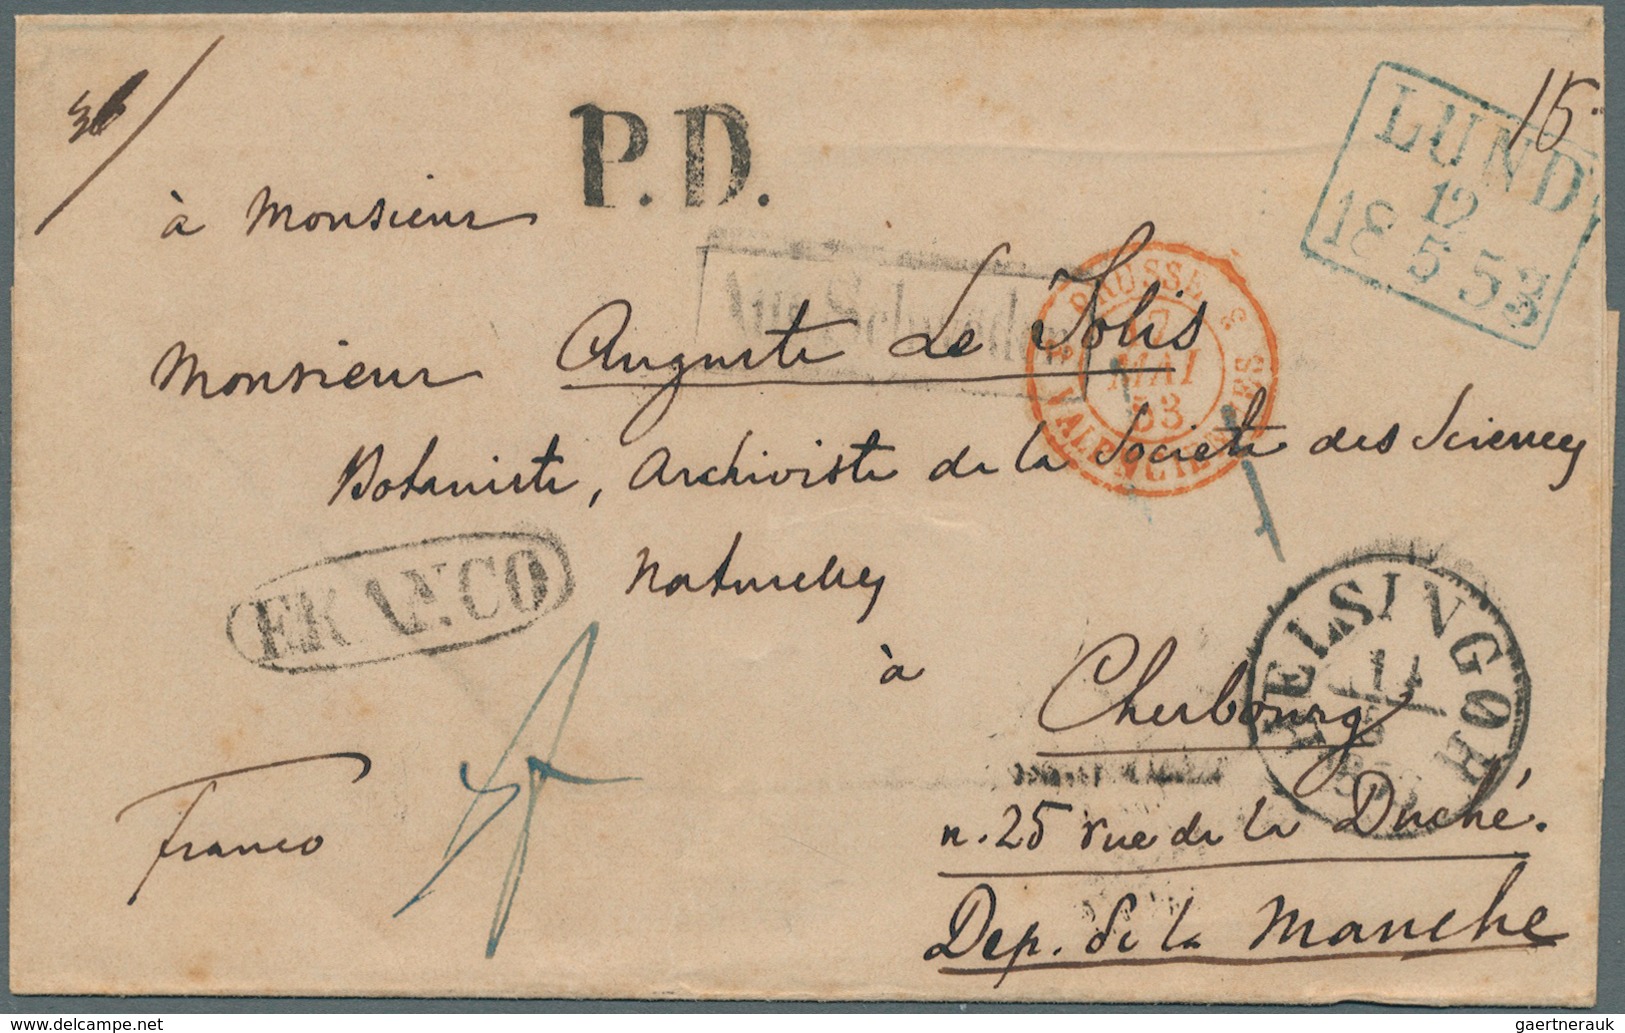 P.D.
LUND
12
18 5 53
15
à Monsieur
Aus Schweden
PRUSSE 3
17
MAI
53
VALENCIENNES
Monsieur Auguste Le Jolis
Botaniste, Archiviste de la Societe des Sciences
Naturelles
FRANCO
HELSINGÖR
à
Cherbourg
Franco
n. 25 rue de la Duché.
Dep. de la Manche
www.delcampe.net
gaertnerauk